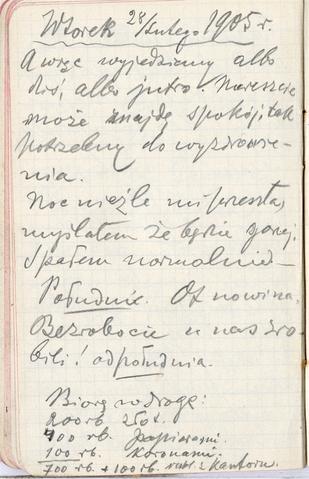 Wtorek 28/lutego 1905 r.
A więc wyjedziemy albo
dziś, albo jutro. Nareszcie
może znajdę spokój, tak
potrzebny do wyzdrowie-
nia.
Noc nieźle mi przeszła,
myślałem że będzie gorzej.
Spałem normalnie –
Południe. Ot nowina.
Bezrobocie u nas zro-
bili! od południa.
Biorę w drogę:
200 rb złot.
400 rb. papierami.
100 rb. koronami.
700 rb. + 100 rb. z Kantoru.